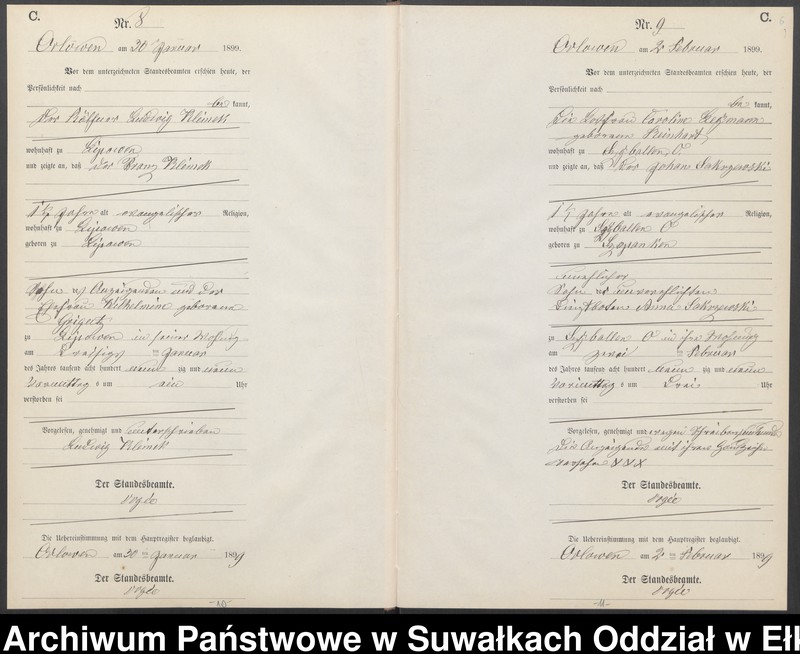 C.
Nr. 8
Orlowen am 30 Januar 1899.
Vor dem unterzeichneten Standesbeamten erschien heute, der
Persönlichkeit nach
be kannt,
Der Käthner Ludwig Klimek
wohnhaft zu
und zeigte an, daß der Franz Klimek
1½ Jahre alt evangelischer Religion,
wohnhaft zu
geboren zu
Sohn Anzeigenden und der
Ehefrau Wilhelmine geborene
zu in seiner Wohnung
am Dreißigsten Januar
des Jahres tausend acht hundert neun zig und neun
Vormittag s um ein Uhr
verstorben sei
Vorgelesen, genehmigt und unterschrieben
Ludwig Klimek
Der Standesbeamte.
Die Uebereinstimmung mit dem Hauptregister beglaubigt.
Orlowen am 30 ten Januar 1899
Der Standesbeamte.
- 10 -
C.
Nr. 9
Orlowen am 2 Februar 1899.
Vor dem unterzeichneten Standesbeamten erschien heute, der
Persönlichkeit nach
be kannt,
Die Losfrau Caroline
geborene Reinhart
wohnhaft zu
und zeigte an, daß der Johan Sakrzewski
1½ Jahre alt evangelischer Religion,
wohnhaft zu
geboren zu
unehelicher
Sohn der unverehelichten
Dienstboten Anna Sakrzewski
zu in ihr Wohnung
am zwei ten Februar
des Jahres tausend acht hundert neun zig und neun
Vormittag s um Drei Uhr
verstorben sei
Vorgelesen, genehmigt und wegen Schreibensunkunde
Die Anzeigende mit ihrem Handzeichen
versehen XXX
Der Standesbeamte.
Die Uebereinstimmung mit dem Hauptregister beglaubigt.
Orlowen am 2 ten Februar 1899
Der Standesbeamte.
- 11 -
Archiwum Państwowe w Suwałkach Oddział w Ełk